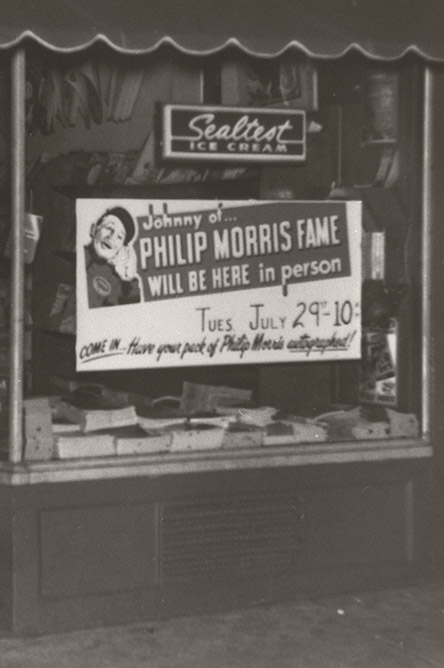 Sealtest
ICE CREAM
Johnny of...
PHILIP MORRIS FAME
WILL BE HERE in person
TUES. JULY 29TH-10:
COME IN... Have your pack of Philip Morris autographed!